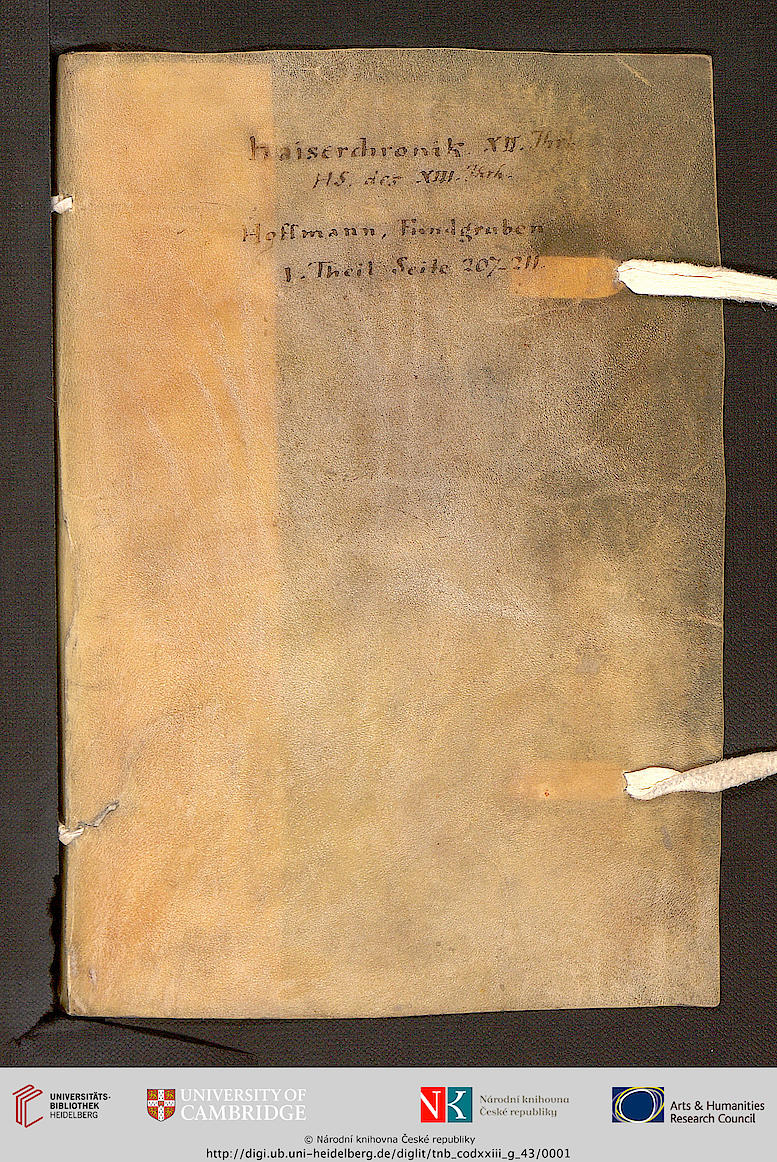 Kaiserchronik XII. Jhrh.
HS. des XIII. Jhrh.
Hoffmann, Fundgruben
1. Theil Seite 207-211.
UNIVERSITÄTS-
BIBLIOTHEK
HEIDELBERG
UNIVERSITY OF
CAMBRIDGE
NK
Národní knihovna
České republiky
Arts & Humanities
Research Council
© Národní knihovna České republiky
http://digi.ub.uni-heidelberg.de/diglit/tnb_codxxiii_g_43/0001